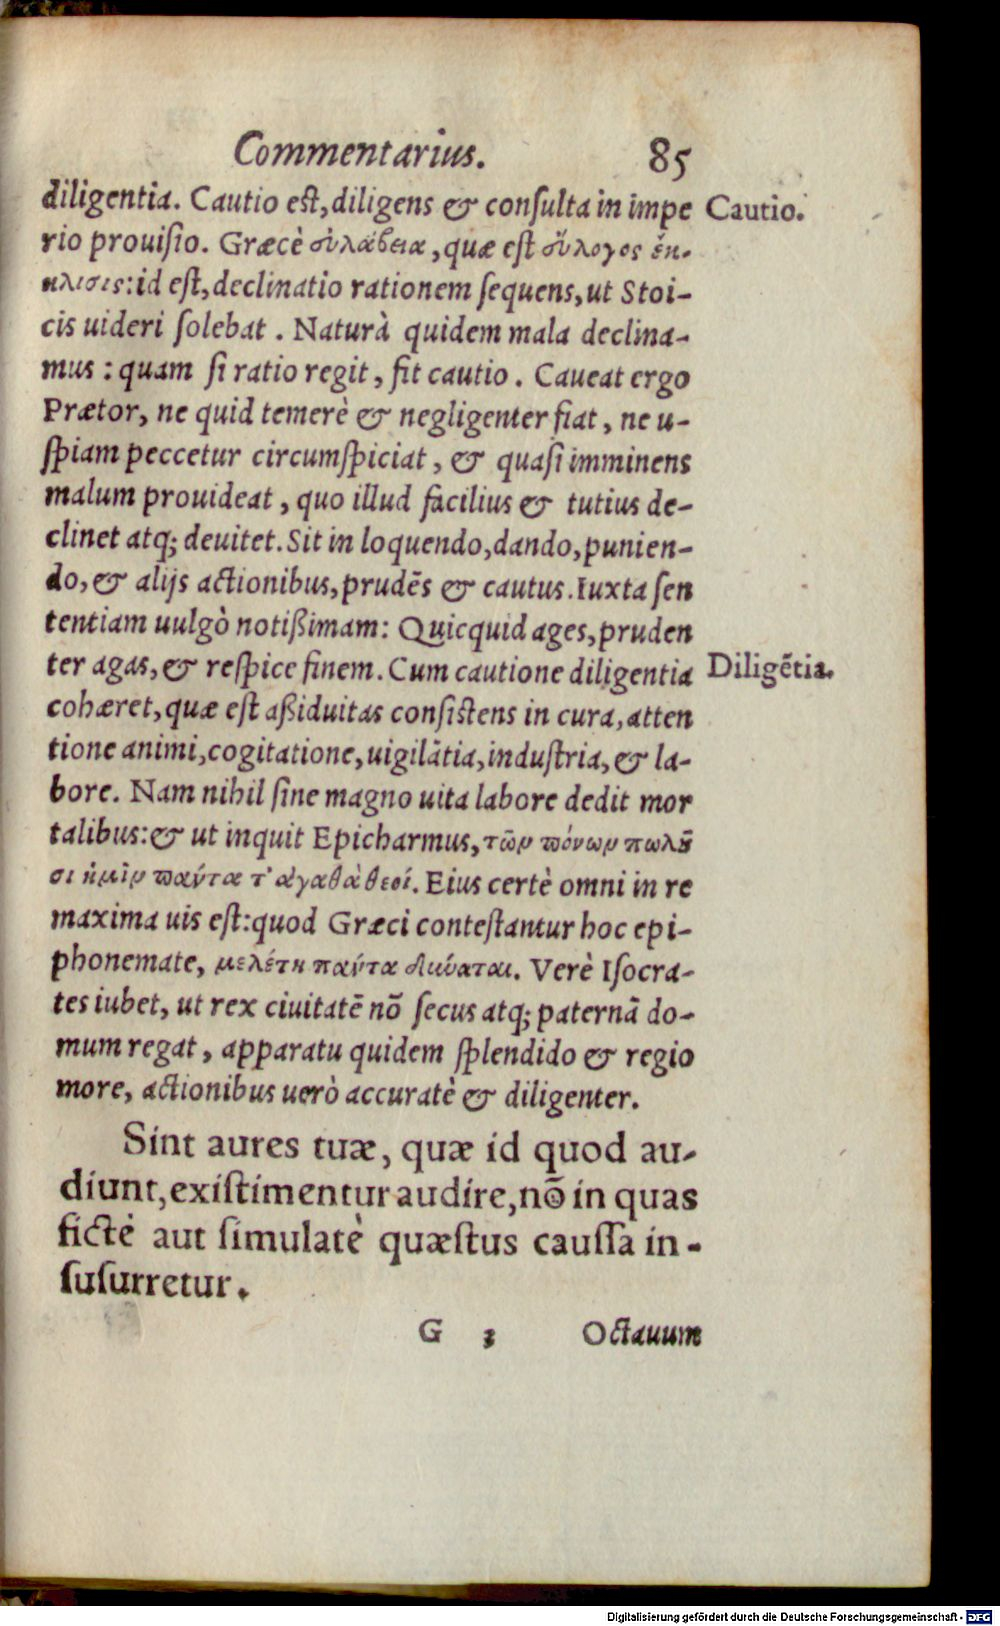 Commentarius. 85
diligentia. Cautio est, diligens & consulta in impe Cautio.
rio prouisio. Græcè εὐλάβεια, quæ est εὔλογος ἔκ-
κλισις: id est, declinatio rationem sequens, ut Stoi-
cis uideri solebat. Naturà quidem mala declina-
mus: quam si ratio regit, fit cautio. Caueat ergo
Prætor, ne quid temerè & negligenter fiat, ne u-
spiam peccetur circumspiciat, & quasi imminens
malum prouideat, quo illud facilius & tutius de-
clinet atq; deuitet. Sit in loquendo, dando, punien-
do, & alijs actionibus, prudēs & cautus. Iuxta sen
tentiam uulgò notißimam: Quicquid ages, pruden
ter agas, & respice finem. Cum cautione diligentia Diligētia.
cohæret, quæ est aßiduitas consistens in cura, atten
tione animi, cogitatione, uigilātia, industria, & la-
bore. Nam nihil sine magno uita labore dedit mor
talibus: & ut inquit Epicharmus, τῶν πόνων πωλοῦ
σι ἡμῖν πάντα τ' ἀγαθὰ θεοί. Eius certè omni in re
maxima uis est: quod Græci contestantur hoc epi-
phonemate, μελέτη πάντα δύναται. Verè Isocra-
tes iubet, ut rex ciuitatē nō secus atq; paternā do-
mum regat, apparatu quidem splendido & regio
more, actionibus uerò accuratè & diligenter.
Sint aures tuæ, quæ id quod au-
diunt, existimentur audire, nō in quas
fictè aut simulatè quæstus caussa in-
susurretur.
G 3 Octauum
Digitalisierung gefördert durch die Deutsche Forschungsgemeinschaft - DFG